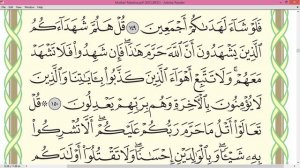 فَلَوْ شَآءَ لَهَدَىٰكُمْ أَجْمَعِينَ ١٤٩ قُلْ هَلُمَّ شُهَدَآءَكُمُ
ٱلَّذِينَ يَشْهَدُونَ أَنَّ ٱللَّهَ حَرَّمَ هَٰذَا فَإِن شَهِدُوا۟ فَلَا تَشْهَدْ
مَعَهُمْ وَلَا تَتَّبِعْ أَهْوَآءَ ٱلَّذِينَ كَذَّبُوا۟ بِـَٔايَٰتِنَا وَٱلَّذِينَ
لَا يُؤْمِنُونَ بِٱلْـَٔاخِرَةِ وَهُم بِرَبِّهِمْ يَعْدِلُونَ ١٥٠ قُلْ
تَعَالَوْا۟ أَتْلُ مَا حَرَّمَ رَبُّكُمْ عَلَيْكُمْ أَلَّا تُشْرِكُوا۟
بِهِۦ شَيْـًٔا وَبِٱلْوَٰلِدَيْنِ إِحْسَٰنًا وَلَا تَقْتُلُوٓا۟ أَوْلَٰدَكُم